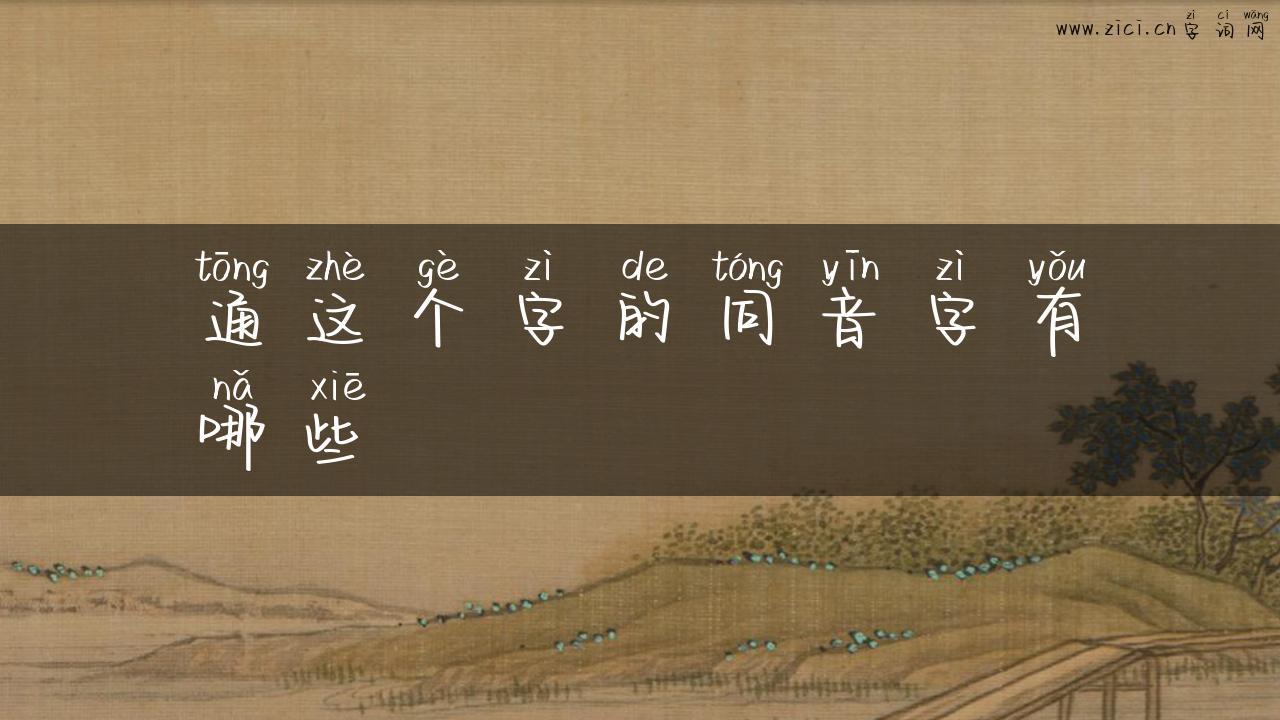 zì cí wǎng
www.zici.cn字词网
tōng zhè gè zì de tóng yīn zì yǒu
通这个字的同音字有
nǎ xiē
哪些